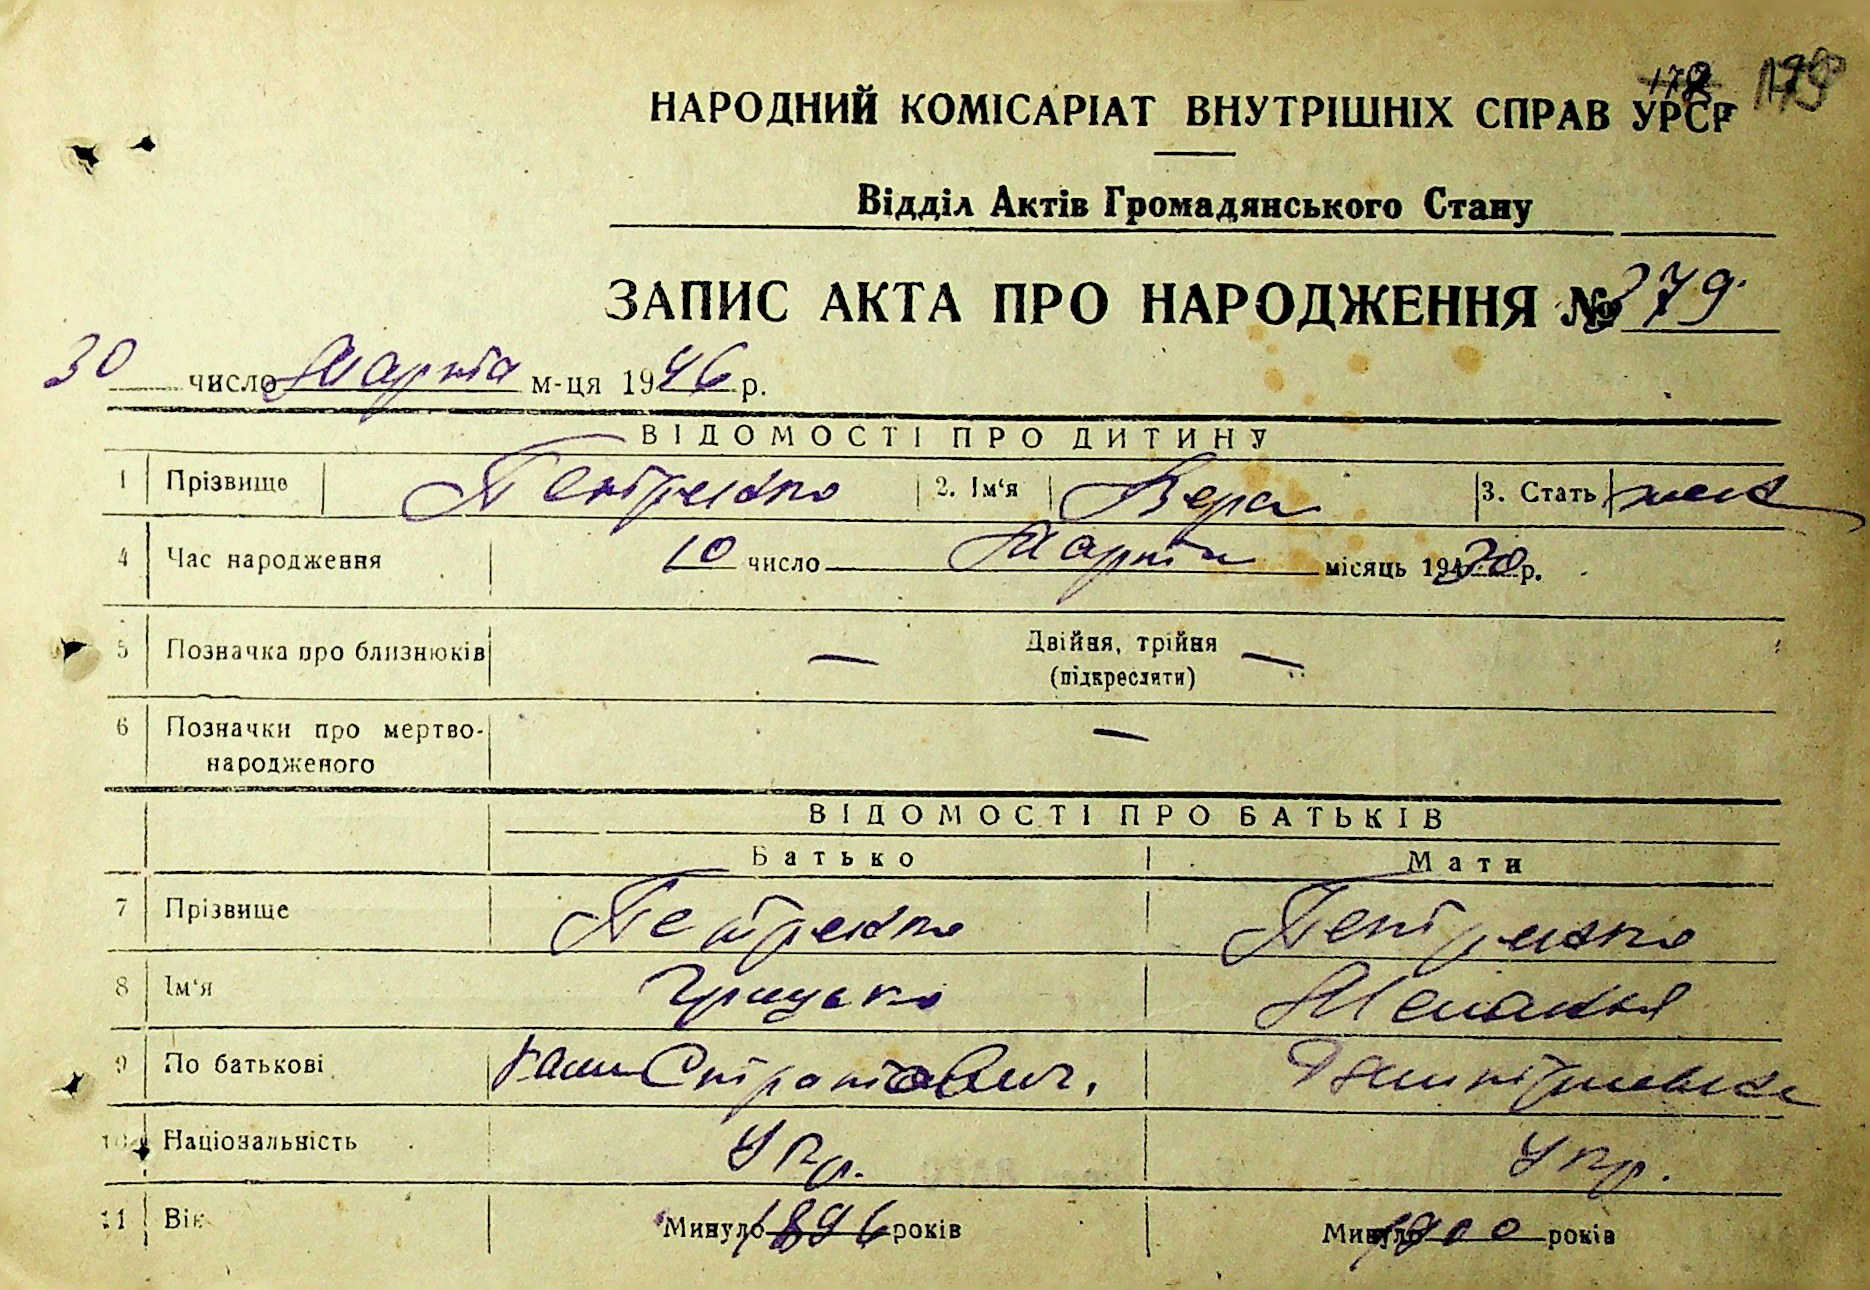 178 179
НАРОДНИЙ КОМІСАРІАТ ВНУТРІШНІХ СПРАВ УРСР
Відділ Актів Громадянського Стану
ЗАПИС АКТА ПРО НАРОДЖЕННЯ № 379
30 число Марта м-ця 1946 р.
ВІДОМОСТІ ПРО ДИТИНУ
1 Прізвище Петренко 2. Ім'я Вера 3. Стать жен
4 Час народження 10 число Марта місяць 1930 р.
5 Позначка про близнюків — Двійня, трійня —
(підкреслити)
6 Позначки про мертво- —
народженого
ВІДОМОСТІ ПРО БАТЬКІВ
Батько Мати
7 Прізвище Петренко Петренко
8 Ім'я Грицько Меланья
9 По батькові Дмитриевна
10 Національність Укр. Укр.
11 Вік Минуло 1896 років Минуло 1900 років